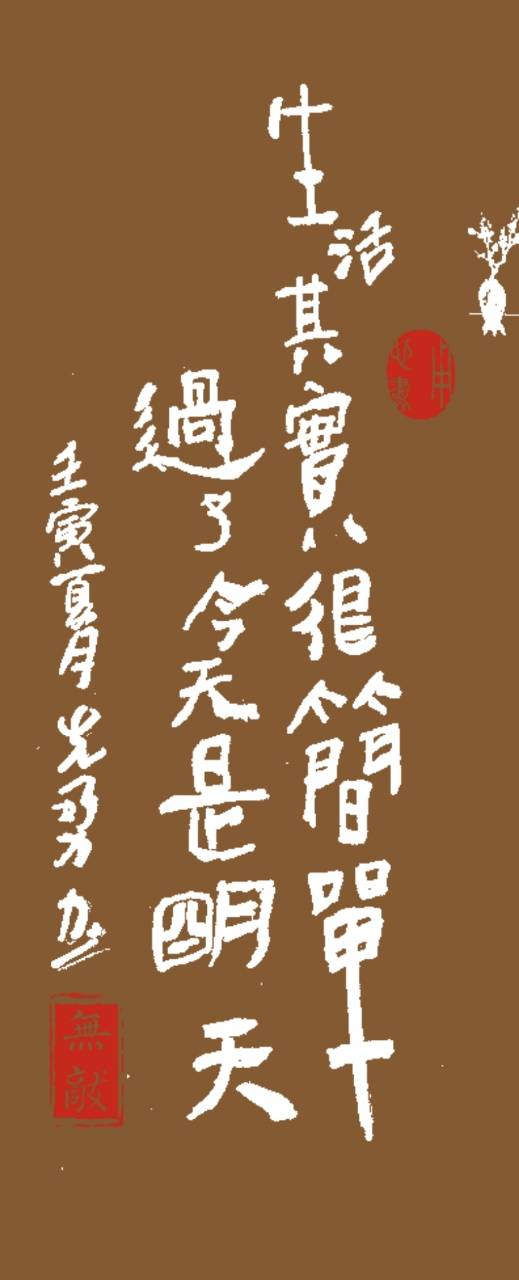 生活其實很簡單
過了今天是明天
壬寅夏月
無敵